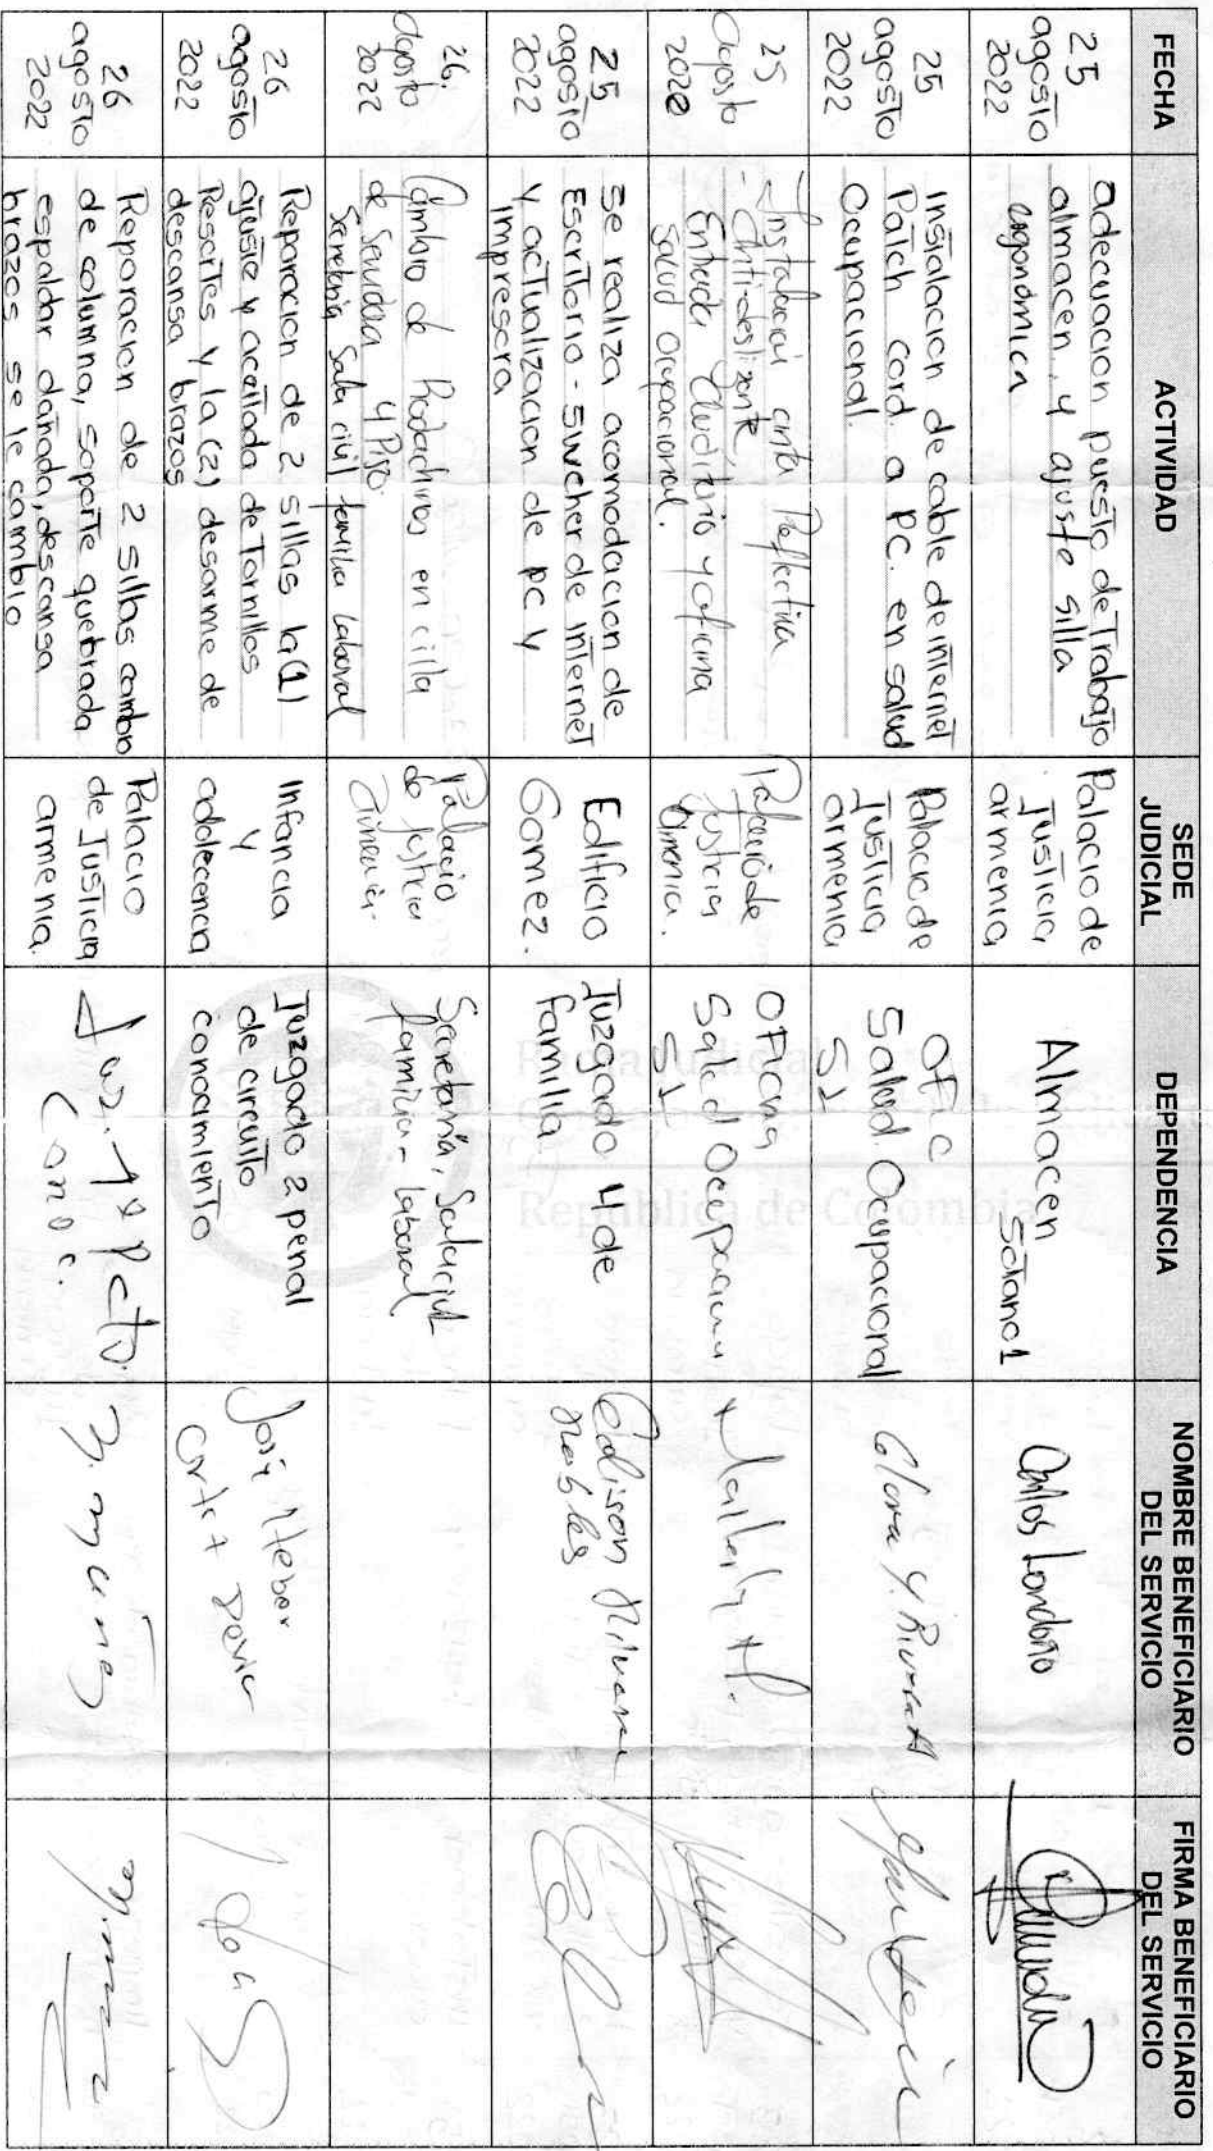 FECHA
ACTIVIDAD
SEDE
JUDICIAL
DEPENDENCIA
NOMBRE BENEFICIARIO
DEL SERVICIO
FIRMA BENEFICIARIO
DEL SERVICIO
25
agosto
2022
adecuacion puesto de Trabajo
almacen, y ajuste silla
ergonómica
Palacio de
Justicia
armenia
Almacen
Sotano 1
Carlos Londoño
25
agosto
2022
Instalacion de cable de internet
Patch cord. a PC. en salud
Ocupacional.
Palacio de
Justicia
armenia
OFIC
Salud Ocupacional
S1
Gloria Y. Rivera
25
Agosto
2022
- Instalación cinta Reflectiva
- Antideslizante
Entrada Auditorio y oficina
Salud Ocupacional.
Palacio de
Justicia
Armenia.
OFicina
Salud Ocupacional
S1
25
agosto
2022
se realiza acomodacion de
Escritorio - swcher de internet
y actualizacion de pc y
impresora
Edificio
Gomez.
Juzgado 4 de
familia
Edisson
Robles
26.
Agosto
2022
Cambio de Rodachines en cilla
de Sandra 4 Piso.
Secretaria Sala civil familia Laboral
Palacio
de justicia
Armenia-
Secretaria, Sala civil
familia - laboral
26
agosto
2022
Reparacion de 2 sillas la (1)
ajuste y aceitada de Tornillos
Resortes y la (2) desarme de
descansa brazos
Infancia
y
adolecencia
Juzgado 2 penal
de circuito
conocamiento
José Heber
26
agosto
2022
Reparacion de 2 sillas cambio
de columna, soporte quebrada
espaldar dañada, descansa
brazos se le cambio
Palacio
de Justicia
armenia.
Juz. 1º P cto.
Conoc.
Rama Judicial
República de Colombia